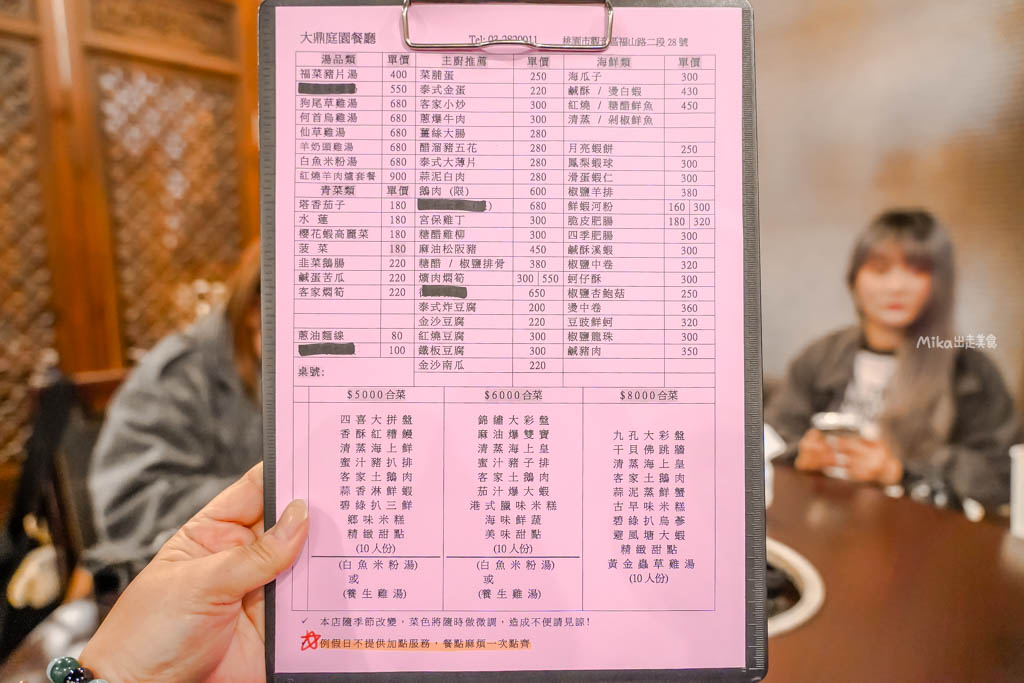 大鼎庭園餐廳 Tel: 03-2820011 桃園市觀音區福山路二段 28 號
湯品類 單價 主廚推薦 單價 海鮮類 單價
福菜豬片湯 400 菜脯蛋 250 海瓜子 300
550 泰式金蛋 220 鹹酥 / 燙白蝦 430
狗尾草雞湯 680 客家小炒 300 紅燒 / 糖醋鮮魚 450
何首烏雞湯 680 蔥爆牛肉 300 清蒸 / 剁椒鮮魚
仙草雞湯 680 薑絲大腸 280
羊奶頭雞湯 680 醋溜豬五花 280 月亮蝦餅 250
白魚米粉湯 680 泰式大薄片 280 鳳梨蝦球 300
紅燒羊肉爐套餐 900 蒜泥白肉 280 滑蛋蝦仁 300
青菜類 單價 鵝肉 (限) 600 椒鹽羊排 380
塔香茄子 180 680 鮮蝦河粉 160 300
水 蓮 180 宮保雞丁 300 脆皮肥腸 180 320
櫻花蝦高麗菜 180 糖醋雞柳 300 四季肥腸 300
菠 菜 180 麻油松阪豬 450 鹹酥溪蝦 300
韭菜鵝腸 220 糖醋 / 椒鹽排骨 380 椒鹽中卷 320
鹹蛋苦瓜 220 爌肉燜筍 300 550 蚵仔酥 300
客家燜筍 220 650 椒鹽杏鮑菇 250
泰式炸豆腐 200 燙中卷 360
金沙豆腐 220 豆豉鮮蚵 320
蔥油麵線 80 紅燒豆腐 300 椒鹽龍珠 300
100 鐵板豆腐 300 鹹豬肉 350
桌號: 金沙南瓜 220
$5000合菜 $6000合菜 $8000合菜
四喜大拼盤 錦繡大彩盤
香酥紅糟鰻 麻油爆雙寶 九孔大彩盤
清蒸海上鮮 清蒸海上皇 干貝佛跳牆
蜜汁豬扒排 蜜汁豬子排 清蒸海上皇
客家土鵝肉 客家土鵝肉 客家土鵝肉
蒜香淋鮮蝦 茄汁爆大蝦 蒜泥蒸鮮蟹
碧綠扒三鮮 港式臘味米糕 古早味米糕
鄉味米糕 海味鮮蔬 碧綠扒烏蔘
精緻甜點 美味甜點 避風塘大蝦
(10人份) (10人份) 精緻甜點
(白魚米粉湯) (白魚米粉湯) 黃金蟲草雞湯
或 或 (10人份)
(養生雞湯) (養生雞湯)
✓ 本店隨季節改變，菜色將隨時做微調，造成不便請見諒!
例假日不提供加點服務，餐點麻煩一次點齊
Mika出走美食